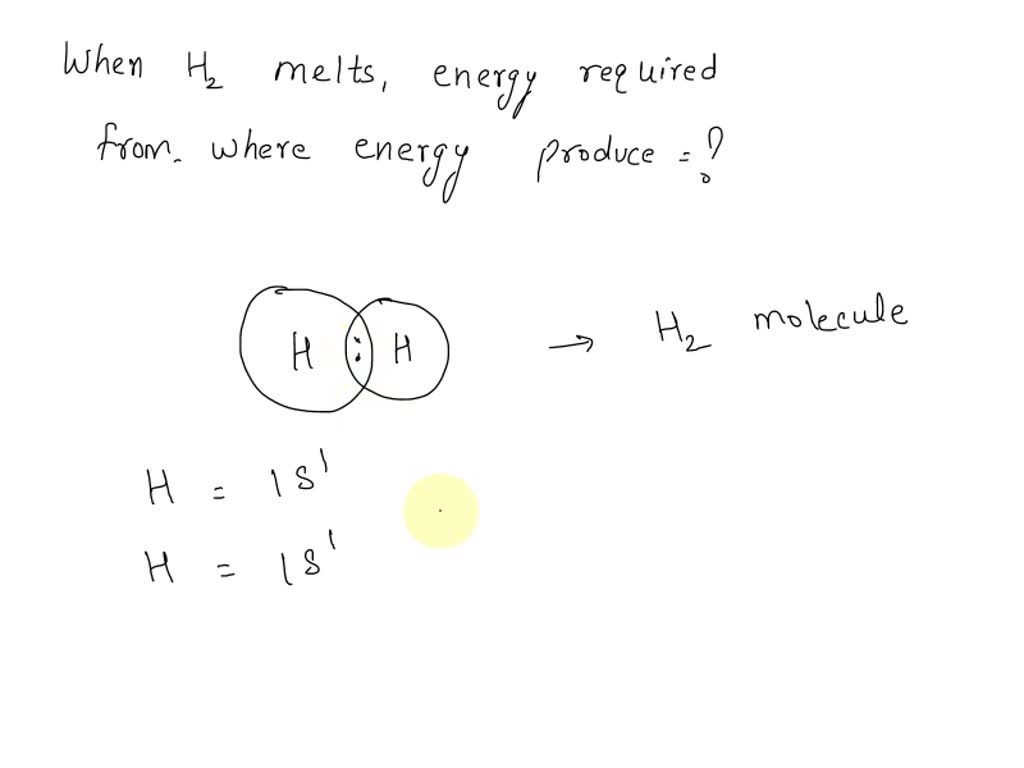 When H₂ melts, energy required
from. where energy produce = ?
H : H → H₂ molecule
H = 1S¹
H = 1S¹